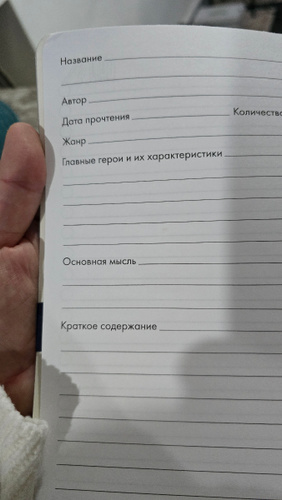 Название
Автор
Дата прочтения Количество
Жанр
Главные герои и их характеристики
Основная мысль
Краткое содержание